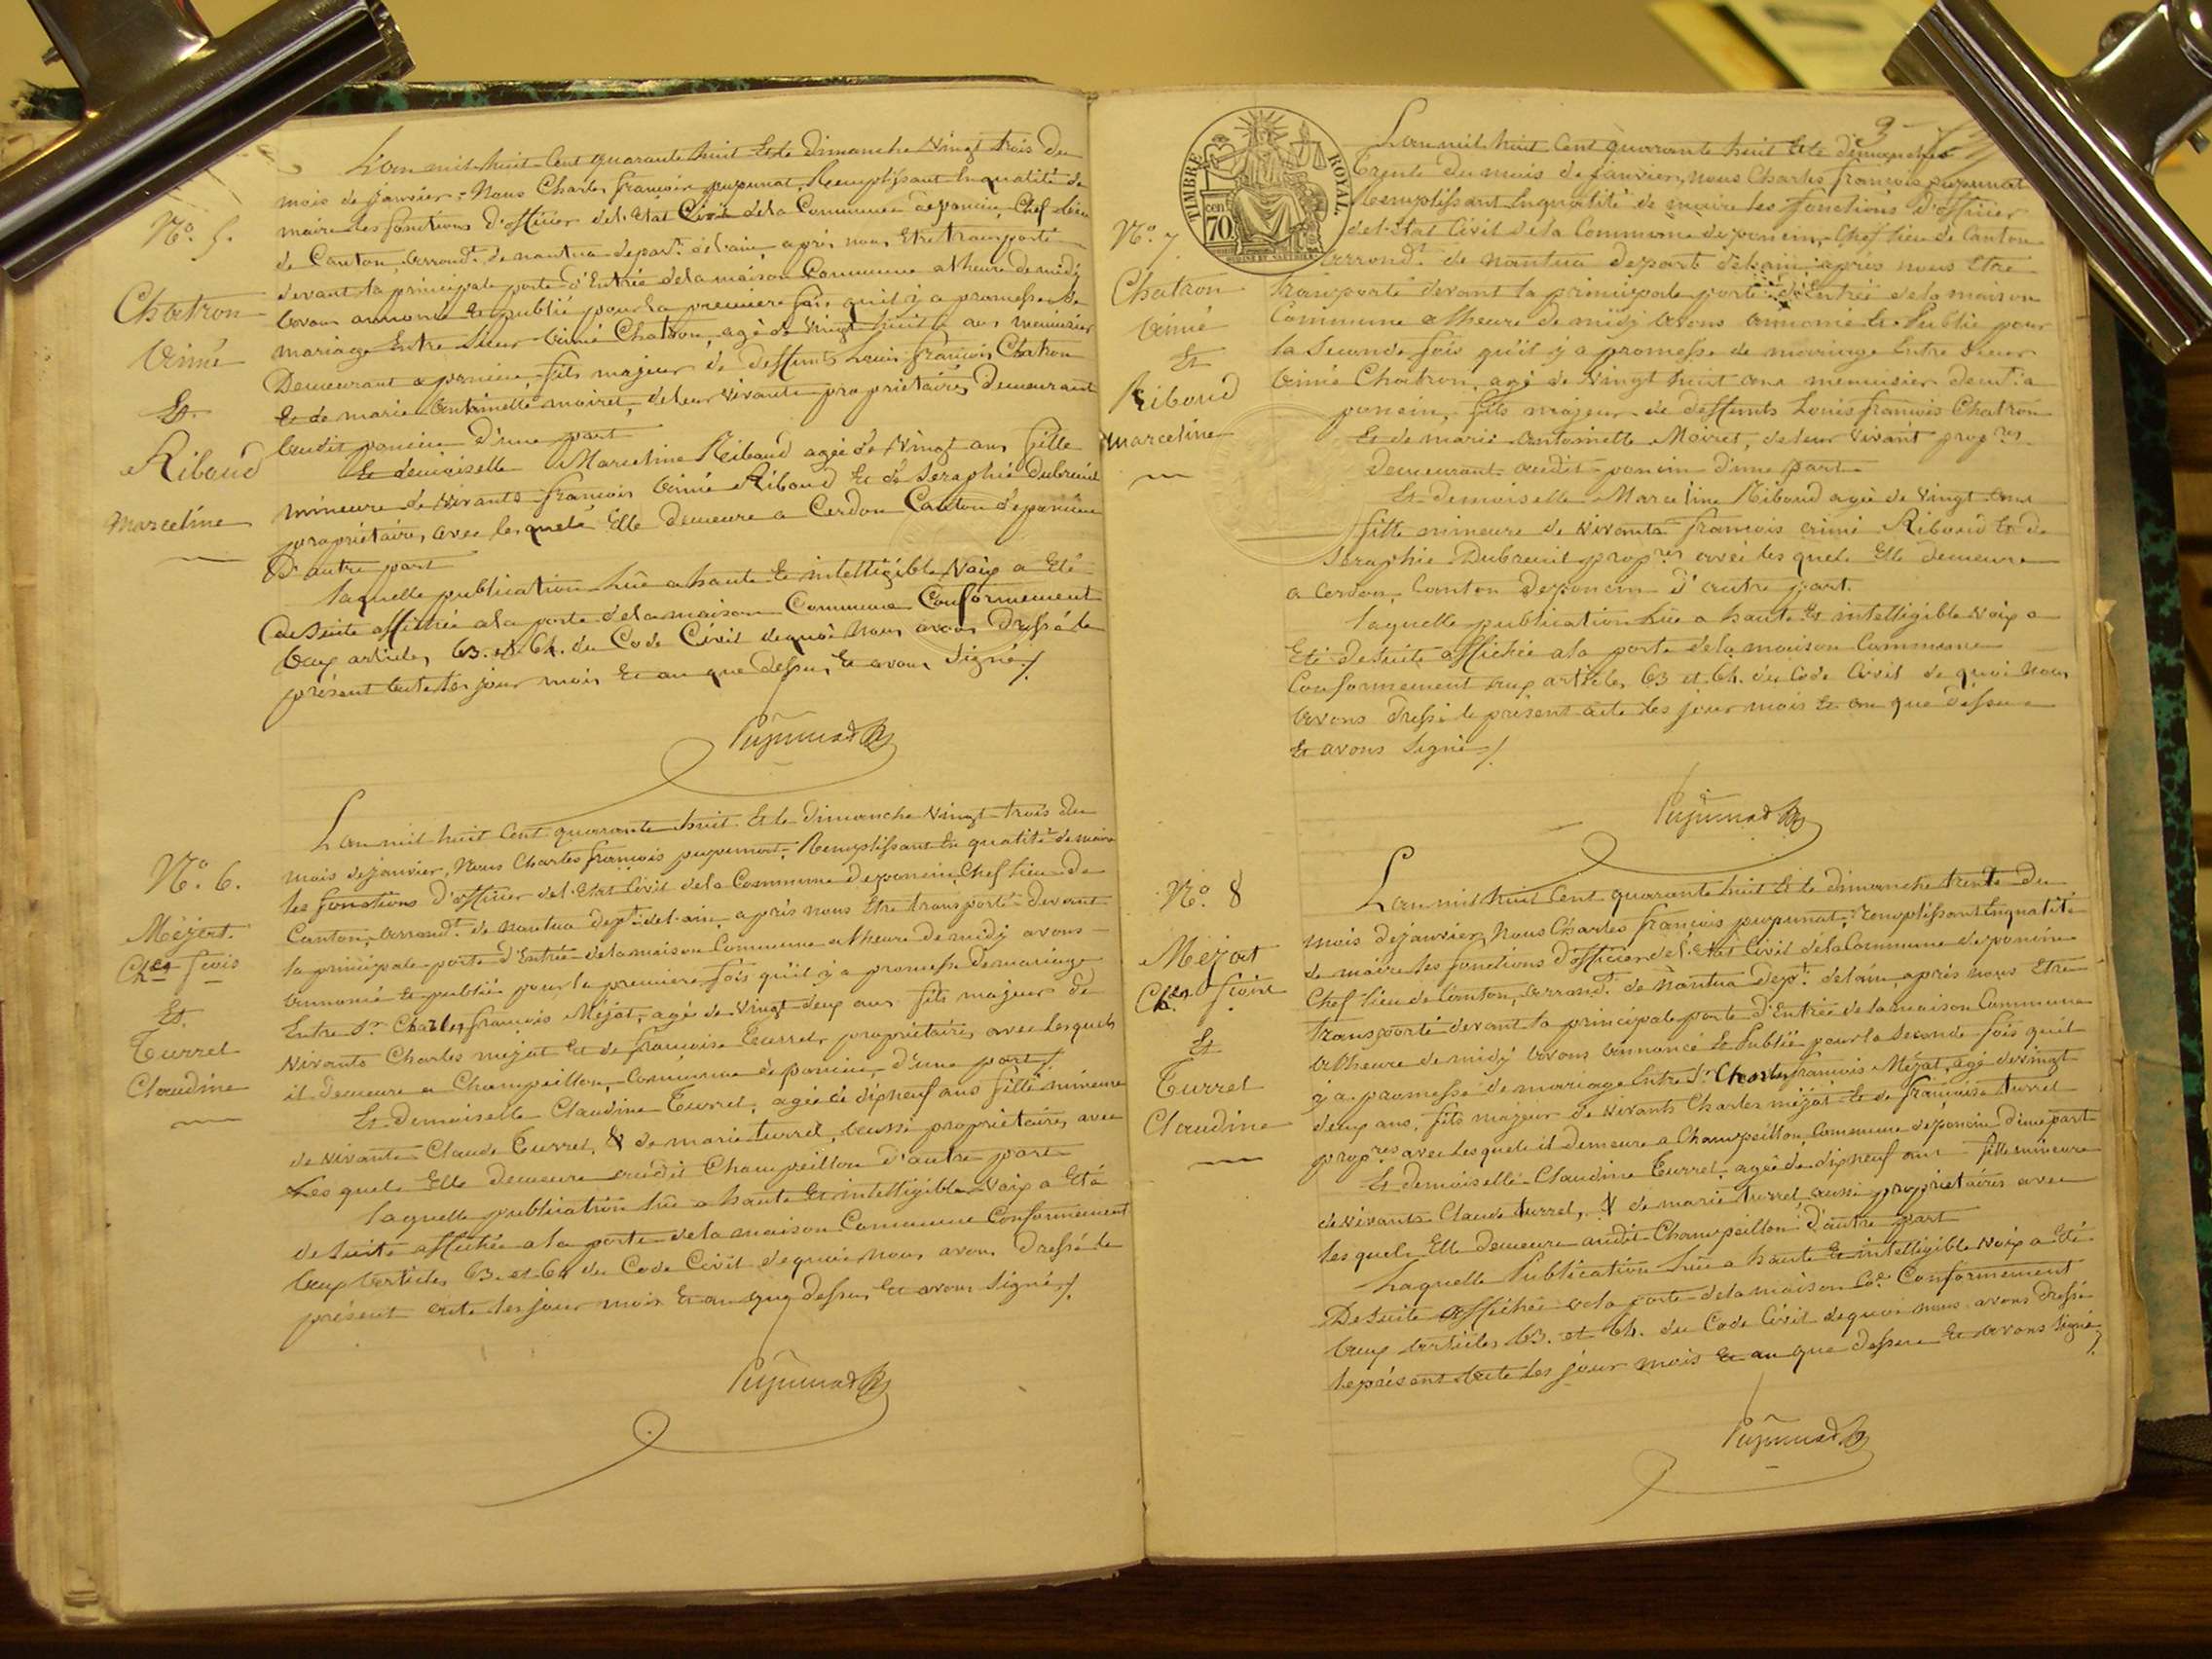 N.o 5.
Chatron
Aimé
Et
Riboud
Marceline
L'an mil huit Cent quarante huit Et le dimanche Vingt trois du
mois de janvier, Nous Charles françois pupunat, Remplissant En qualité de
maire les fonctions d'officier de l'Etat Civil de la Commune de poncin, Chef lieu
de Canton, arrond.t de nantua depart.t de l'ain, après nous Etre transporté
devant la principale porte d'Entrée de la maison Commune a l'heure de midy
avons annoncé Et publié pour la premiere fois qu'il y a promesse de
mariage Entre Sieur Aimé Chatron, agé de Vingt huit ans menuisier
Demeurant a poncin, fils majeur de deffunts Louis françois Chatron
Et de marie antoinette moiret, de leur vivants propriétaires demeurant
audit poncin d'une part
Et demoiselle Marceline Riboud agée de Vingt ans fille
mineure de vivants françois Aimé Riboud Et de Séraphie Dubreuil
propriétaires avec lesquels Elle demeure a Cerdon Canton de poncin
D'autre part
laquelle publication lüe a haute Et intelligible Voix a Eté
de Suite affichée a la porte de la maison Commune Conformement
aux articles 63. et 64. du Code Civil de quoi Nous avons Dressé le
présent acte les jour mois Et an que dessus, Et avons Signé /.
Pupunat
N.o 6.
Méjat
Ch.les f.cois
Et
Turrel
Claudine
L'an mil huit Cent quarante huit Et le dimanche Vingt trois du
mois de janvier, Nous Charles françois pupunat, Remplissant En qualité de maire
les fonctions d'officier de l'Etat Civil de la Commune de poncin, Chef lieu de
Canton, arrond.t de nantua dep.t de l'ain, après nous Etre transporté devant
la principale porte d'Entrée de la maison Commune a l'heure de midy avons
annoncé Et publié pour la premiere fois qu'il y a promesse de mariage
Entre S.r Charles françois Méjat, agé de Vingt deux ans fils majeur de
Vivants Charles méjat Et de françoise Turrel, propriétaires avec lesquels
il demeure a Champeillon, Commune de poncin, d'une part /.
Et Demoiselle Claudine Turrel, agée de dixneuf ans fille mineure
de vivants Claude Turrel, & de marie turrel, aussi propriétaires avec
Lesquels Elle demeure audit Champeillon d'autre part
laquelle publication lüe a haute Et intelligible Voix a Eté
de Suite affichée a la porte de la maison Commune Conformement
aux Articles 63. et 64 du Code Civil de quoi Nous avons Dressé le
présent acte les jour mois Et an que dessus, Et avons Signé /.
Pupunat
3
TIMBRE ROYAL
70 cen
N.o 7
Chatron
Aimé
Et
Riboud
Marceline
L'an mil huit Cent quarante huit Et le dimanche
trente du mois de janvier, nous Charles françois pupunat
Remplissant En qualité de maire les fonctions d'officier
de l'Etat Civil de la Commune de poncin, Chef lieu de Canton
arrond.t de Nantua depart de l'ain, après nous Etre
transporté devant la principale porte d'Entrée de la maison
Commune a l'heure de midy avons annoncé Et Publié pour
la Seconde fois qu'il y a promesse de mariage Entre Sieur
Aimé Chatron, agé de Vingt huit ans menuisier dem.t a
poncin, fils majeur de deffunts Louis françois Chatron
Et de marie antoinette Moiret, de leur vivant prop.res
demeurant audit poncin d'une part
Et demoiselle Marceline Riboud agée de Vingt ans
fille mineure de vivants françois aimé Riboud Et de
Séraphie Dubreuil prop.res avec lesquels Elle demeure
a Cerdon, Canton de poncin d'autre part.
laquelle publication lüe a haute Et intelligible voix a
Eté de Suite affichée a la porte de la maison Commune
Conformement aux articles 63 et 64. du Code Civil de quoi Nous
avons dressé le présent acte les jour mois Et an que dessus
Et avons Signé /.
Pupunat
N.o 8
Méjat
Ch.les f.cois
Et
Turrel
Claudine
L'an mil huit Cent quarante huit Et le dimanche trente du
mois de janvier, Nous Charles françois pupunat, remplissant En qualité
de maire les fonctions d'officier de l'Etat Civil de la Commune de poncin
Chef-lieu de Canton, arrond.t de Nantua dep.t de l'ain, après nous Etre
transporté devant la principale porte d'Entrée de la maison Commune
a l'heure de midy avons annoncé Et Publié pour la Seconde fois qu'il
y a promesse de mariage Entre S.r Charles françois Méjat, agé de vingt
deux ans, fils majeur de vivants Charles méjat Et de françoise turrel
prop.res avec lesquels il demeure a Champeillon, Commune de poncin d'une part
Et demoiselle Claudine Turrel, agée de dixneuf ans fille mineure
de vivants Claude turrel, & de marie turrel aussi propriétaires avec
lesquels Elle demeure audit Champeillon d'autre part
Laquelle Publication lüe a haute Et intelligible Voix a Eté
De Suite affichée a la porte de la maison Co.e Conformement
aux Articles 63. et 64. du Code Civil de quoi nous avons dressé
le présent acte les jour mois Et an que dessus Et avons Signé
Pupunat